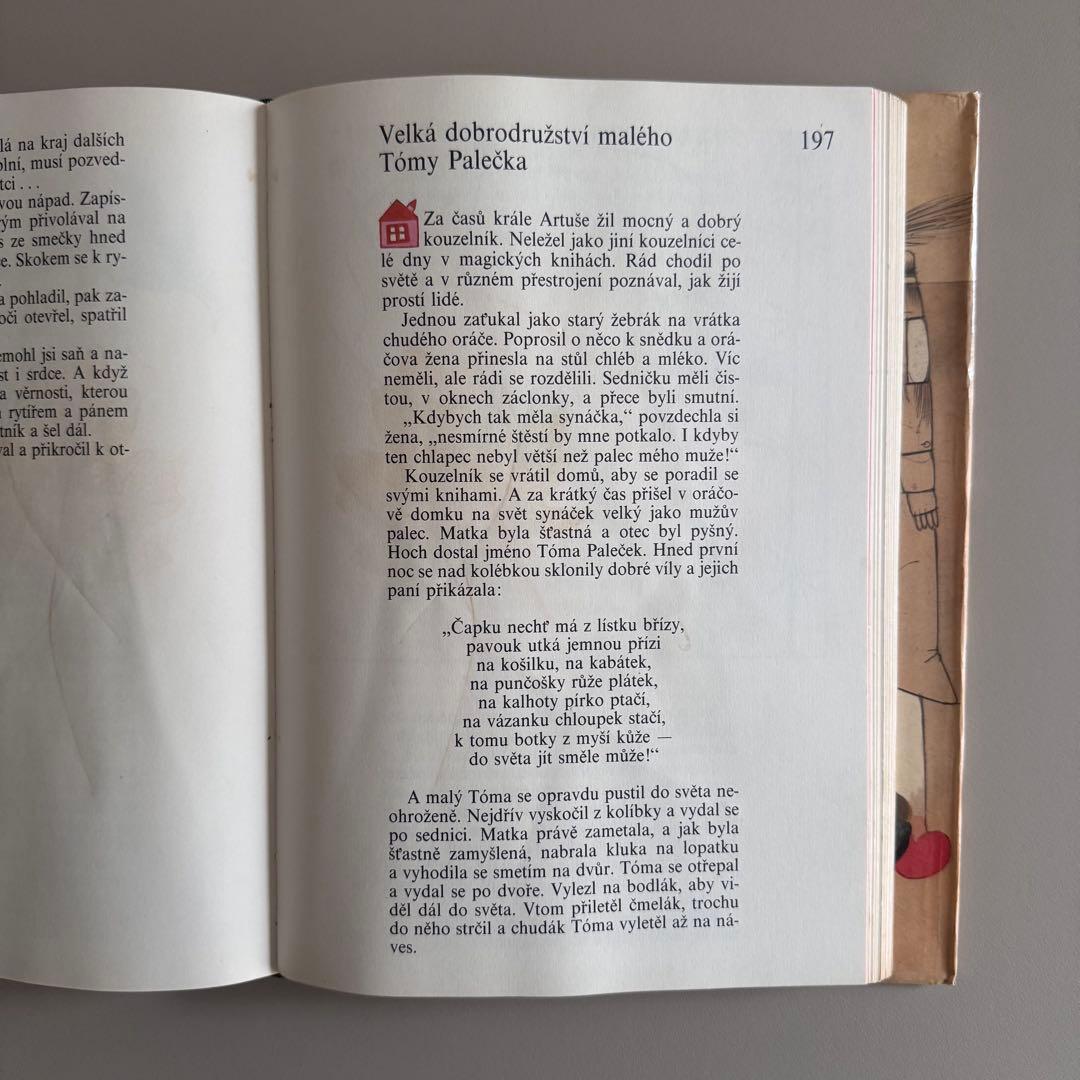 lá na kraj dalších
olní, musí pozved-
tci . . .
vou nápad. Zapís-
rým přivolával na
s ze smečky hned
e. Skokem se k ry-
a pohladil, pak za-
oči otevřel, spatřil
emohl jsi saň a na-
st i srdce. A když
a věrnosti, kterou
rytířem a pánem
tník a šel dál.
val a přikročil k ot-
Velká dobrodružství malého
Tómy Palečka
197
Za časů krále Artuše žil mocný a dobrý
kouzelník. Neležel jako jiní kouzelníci ce-
lé dny v magických knihách. Rád chodil po
světě a v různém přestrojení poznával, jak žijí
prostí lidé.
Jednou zaťukal jako starý žebrák na vrátka
chudého oráče. Poprosil o něco k snědku a orá-
čova žena přinesla na stůl chléb a mléko. Víc
neměli, ale rádi se rozdělili. Sedničku měli čis-
tou, v oknech záclonky, a přece byli smutní.
„Kdybych tak měla synáčka,“ povzdechla si
žena, „nesmírné štěstí by mne potkalo. I kdyby
ten chlapec nebyl větší než palec mého muže!“
Kouzelník se vrátil domů, aby se poradil se
svými knihami. A za krátký čas přišel v oráčo-
vě domku na svět synáček velký jako mužův
palec. Matka byla šťastná a otec byl pyšný.
Hoch dostal jméno Tóma Paleček. Hned první
noc se nad kolébkou sklonily dobré víly a jejich
paní přikázala:
„Čapku nechť má z lístku břízy,
pavouk utká jemnou přízi
na košilku, na kabátek,
na punčošky růže plátek,
na kalhoty pírko ptačí,
na vázanku chloupek stačí,
k tomu botky z myší kůže —
do světa jít směle může!“
A malý Tóma se opravdu pustil do světa ne-
ohroženě. Nejdřív vyskočil z kolíbky a vydal se
po sednici. Matka právě zametala, a jak byla
šťastně zamyšlená, nabrala kluka na lopatku
a vyhodila se smetím na dvůr. Tóma se otřepal
a vydal se po dvoře. Vylezl na bodlák, aby vi-
děl dál do světa. Vtom přiletěl čmelák, trochu
do něho strčil a chudák Tóma vyletěl až na ná-
ves.